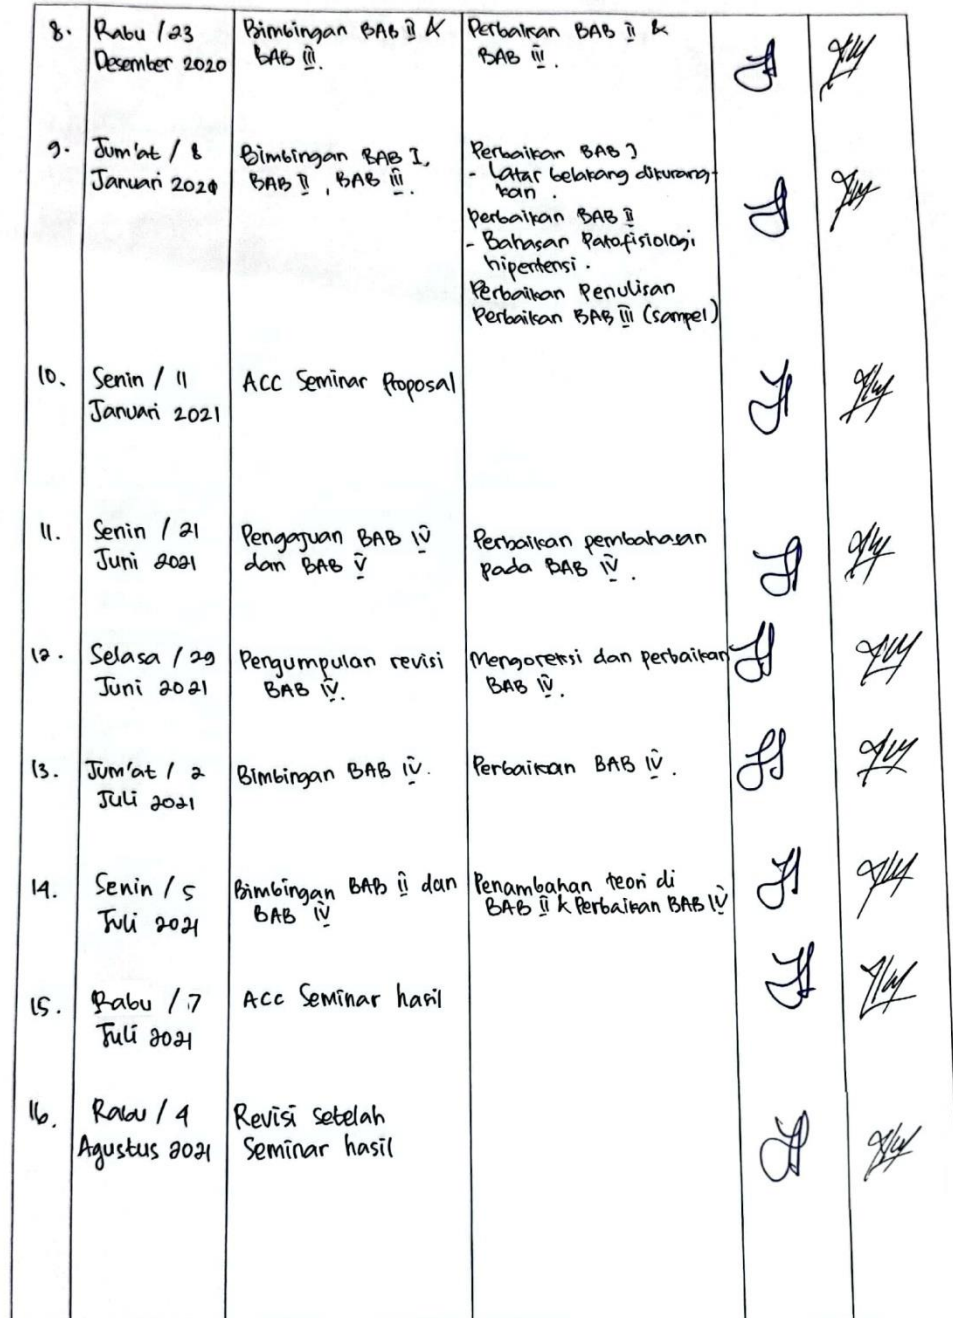 8. Rabu / 23 Desember 2020
Bimbingan BAB II & BAB III.
Perbaikan BAB II & BAB III.
9. Jum'at / 8 Januari 2020
Bimbingan BAB I, BAB II, BAB III.
Perbaikan BAB I
- Latar belakang dikurang-
kan.
Perbaikan BAB II
- Bahasan Patofisiologi
hipertensi.
Perbaikan Penulisan
Perbaikan BAB III (sampel)
10. Senin / 11 Januari 2021
ACC Seminar Proposal
11. Senin / 21 Juni 2021
Pengajuan BAB IV dan BAB V
Perbaikan pembahasan pada BAB IV.
12. Selasa / 29 Juni 2021
Pengumpulan revisi BAB IV.
Mengoreksi dan perbaikan BAB IV.
13. Jum'at / 2 Juli 2021
Bimbingan BAB IV.
Perbaikan BAB IV.
14. Senin / 5 Juli 2021
Bimbingan BAB II dan BAB IV
Penambahan teori di BAB II & Perbaikan BAB IV
15. Rabu / 7 Juli 2021
ACC Seminar hasil
16. Rabu / 4 Agustus 2021
Revisi setelah Seminar hasil